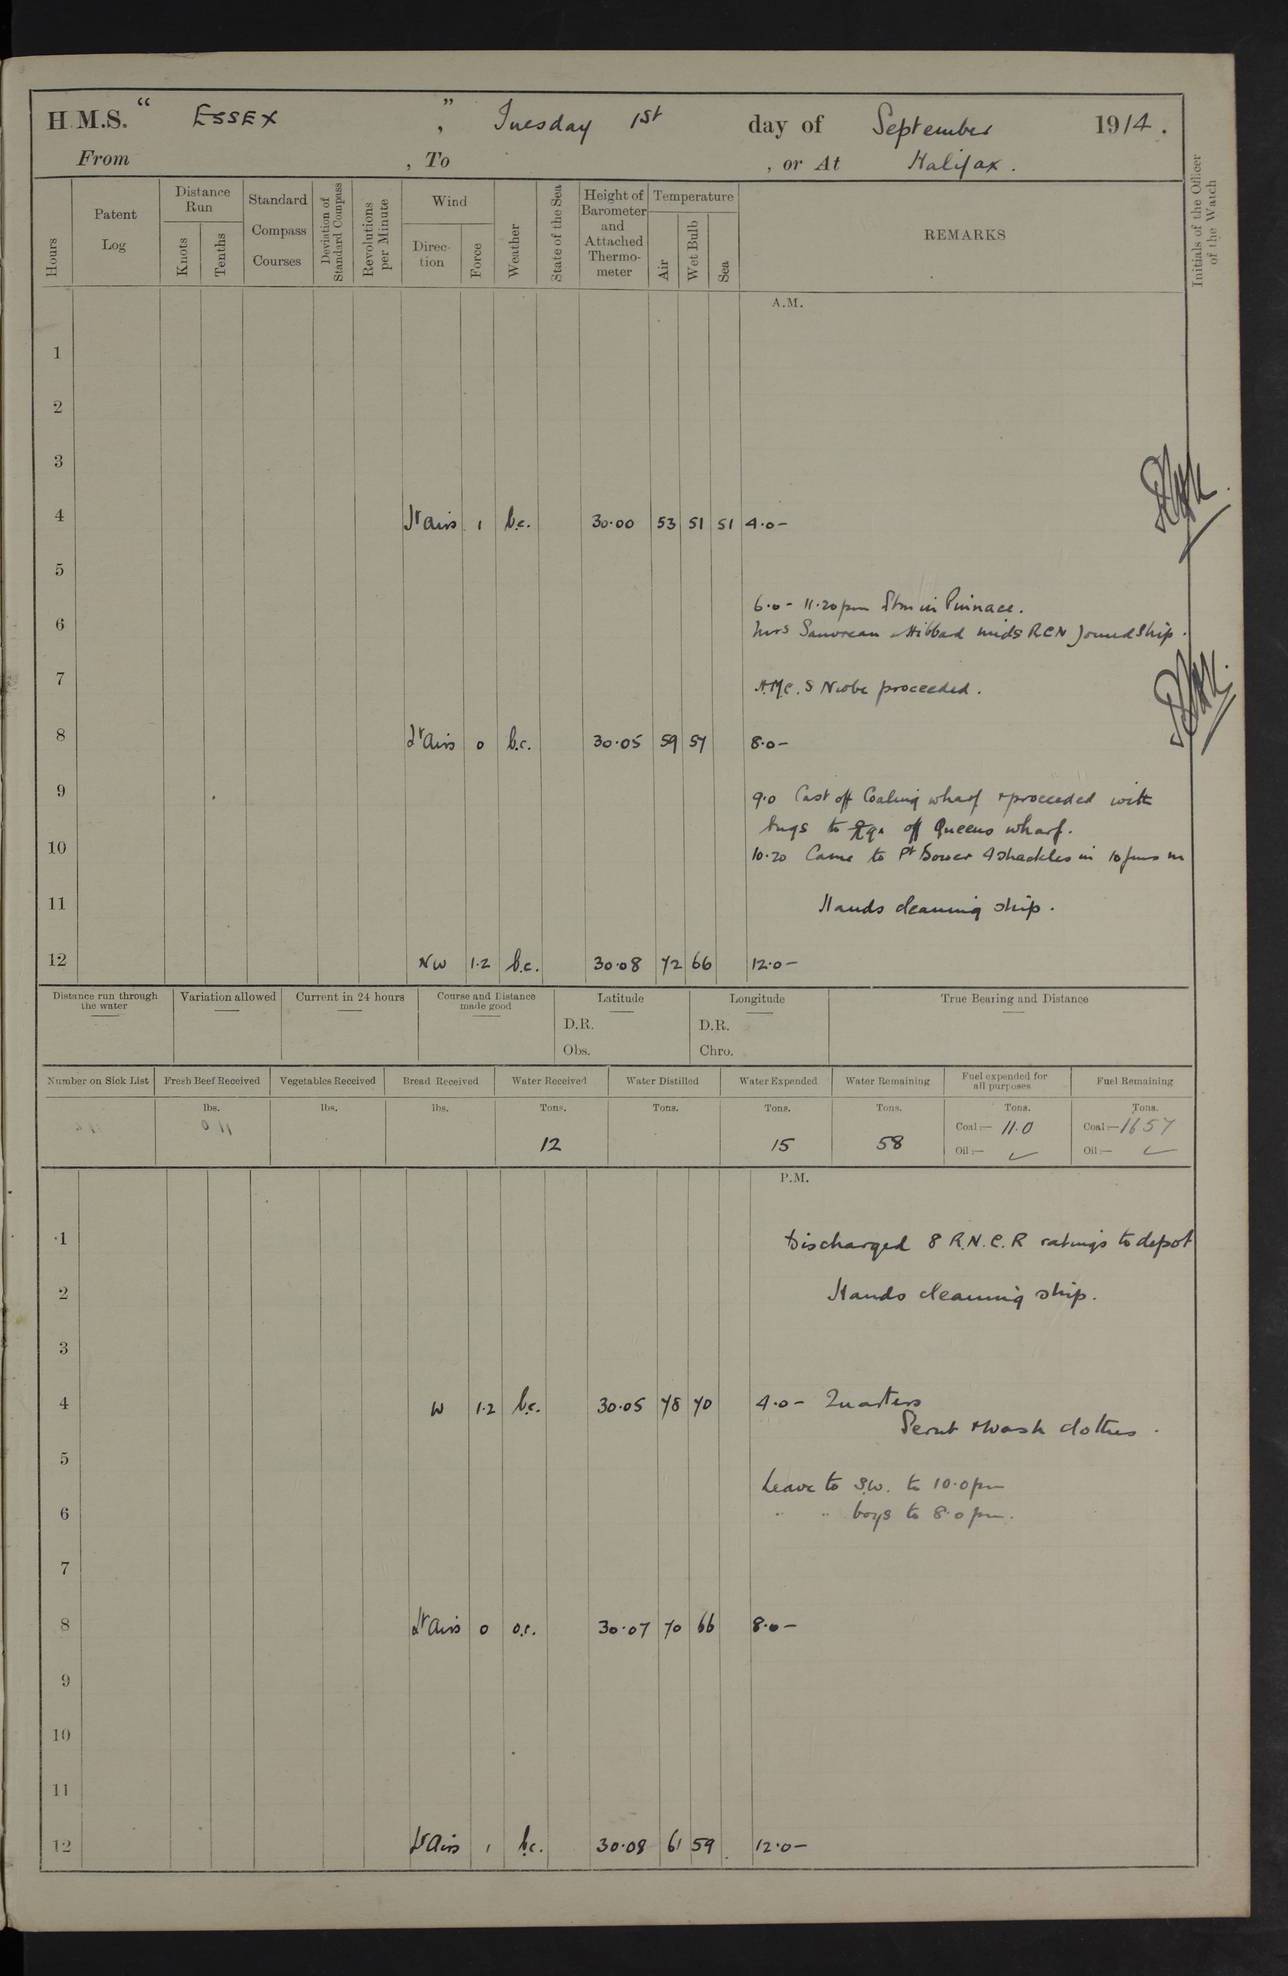 H.M.S. “ ESSEX ”, Tuesday 1st day of September 1914.
From , To , or At Halifax.
Hours
Patent Log
Distance Run
Knots
Tenths
Standard Compass Courses
Deviation of Standard Compass
Revolutions per Minute
Wind
Direction
Force
Weather
State of the Sea
Height of Barometer and Attached Thermometer
Temperature
Air
Wet Bulb
Sea
REMARKS
Initials of the Officer of the Watch
A.M.
1
2
3
4 Lt airs 1 b.c. 30.00 53 51 51 4.0-
5
6.0- 11.20pm Stm in Pinnace.
6 Hibbard mids RCN joined ship.
7 H.M.C.S Niobe proceeded.
8 Lt airs 0 b.c. 30.05 59 57 8.0-
9 9.0 Cast off Coaling wharf & proceeded with
tugs to off Queens wharf.
10 10.20 Came to Pt Bower 4 shackles in 10 fms m
11 Hands cleaning ship.
12 NW 1.2 b.c. 30.08 72 66 12.0-
Distance run through the water
Variation allowed
Current in 24 hours
Course and Distance made good
Latitude
D.R.
Obs.
Longitude
D.R.
Chro.
True Bearing and Distance
Number on Sick List
Fresh Beef Received
Vegetables Received
Bread Received
Water Received
Water Distilled
Water Expended
Water Remaining
Fuel expended for all purposes
Fuel Remaining
lbs. lbs. lbs. Tons. Tons. Tons. Tons. Tons. Tons.
12 15 58 Coal:— 11.0 Coal:— 1657
Oil:— ✓ Oil:— ✓
P.M.
1 Discharged 8 R.N.C.R ratings to depot
2 Hands cleaning ship.
3
4 W 1.2 b.c. 30.05 78 70 4.0- Quarters
wash clothes.
5 Leave to S.W. to 10.0pm
6 " " boys to 8.0pm.
7
8 Lt airs 0 o.c. 30.07 70 66 8.0-
9
10
11
12 Lt airs 1 b.c. 30.08 61 59 12.0-